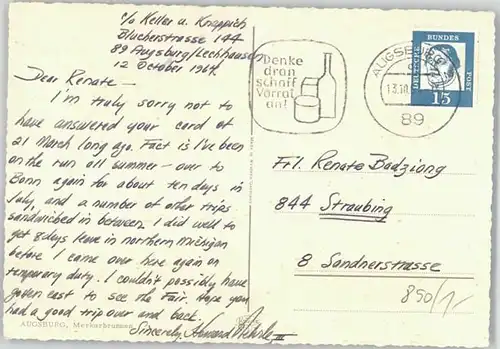 c/o Keller u. Knappich
Blucherstrasse 144
89 Augsburg/Lechhausen
12 October 1964
Dear Renate —
I'm truly sorry not to
have answered your card of
21 March long ago. Fact is I've been
on the run all summer — over to
Bonn again for about ten days in
July, and a number of other trips
sandwiched in between. I did well to
get 8 days leave in northern Michigan
before I came over here again on
temporary duty. I couldn't possibly have
gotten east to see the Fair. Hope you
had a good trip over and back.
Sincerely, Howard
AUGSBURG, Merkurbrunnen
Denke
dran
schaff
Vorrat
an!
AUGSBURG
13.10.
89
DEUTSCHE BUNDES POST
15
Frl. Renate Badziong
844 Straubing
8 Sondnerstrasse
850/1